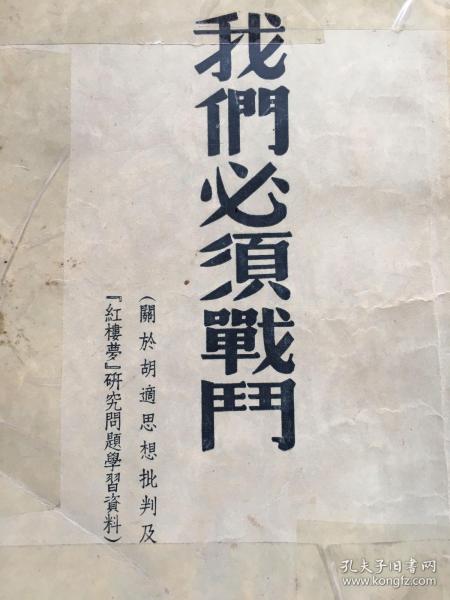 我們必須戰鬥
（關於胡適思想批判及
『紅樓夢』研究問題學習資料）
孔夫子旧书网
www.kongfz.com